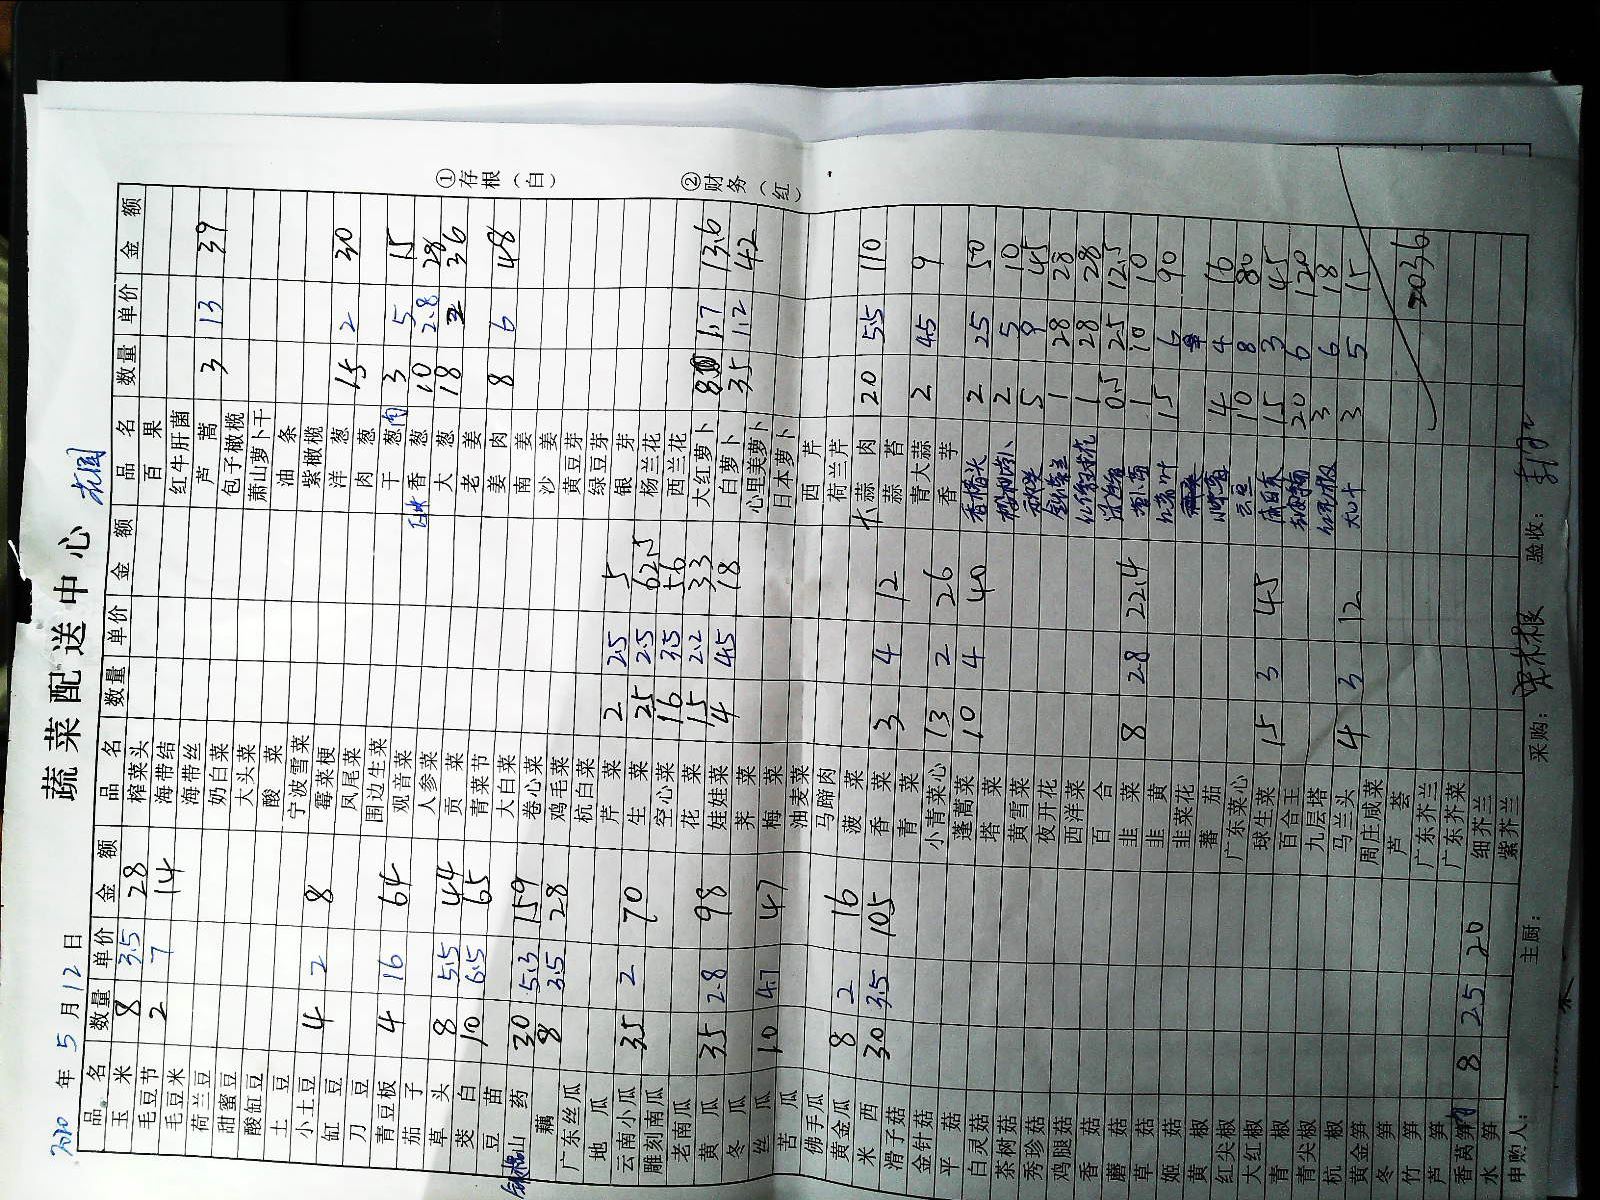 蔬菜配送中心
2010年5月12日
品名 数量 单价 金额
玉米 8 3.5 28
毛豆节 2 7 14
毛豆米
荷兰豆
甜蜜豆
酸豇豆
土豆
小土豆 4 2 8
豇豆
刀豆
青豆板 4 16 64
茄子
草头 8 5.5 44
茭白 10 6.5 65
豆苗
山药 30 5.3 159
藕 8 3.5 28
广东丝瓜
地瓜
云南小瓜 35 2 70
雕刻南瓜
老南瓜
黄瓜 35 2.8 98
冬瓜
丝瓜 10 4.7 47
苦瓜
佛手瓜
黄金瓜 8 2 16
米西 30 3.5 105
滑子菇
金针菇
平菇
白灵菇
茶树菇
秀珍菇
鸡腿菇
香菇
蘑菇
草菇
姬菇
黄椒
红尖椒
大红椒
青椒
青尖椒
杭椒
黄金笋
冬笋
竹笋
芦笋
香莴笋 8 2.5 20
水笋
品名 数量 单价 金额
榨菜头
海带结
海带丝
奶白菜
大头菜
酸菜
宁波雪菜
霉菜梗
凤尾菜
围边生菜
观音菜
人参菜
贡菜
青菜节
大白菜
卷心菜
鸡毛菜
杭白菜
芹菜 2 2.5 5
生菜 25 2.5 62.5
空心菜 16 3.5 56
花菜 15 2.2 33
娃娃菜 4 4.5 18
荠菜
梅菜
油麦菜
马蹄肉
菠菜
香菜 3 4 12
青菜
小青菜心 13 2 26
蓬蒿菜 10 4 40
塔菜
黄雪菜
夜开花
西洋菜
百合
韭菜 8 2.8 22.4
韭黄
韭菜花
蕃茄
广东菜心
球生菜 15 3 45
百合王
九层塔
马兰头 4 3 12
周庄咸菜
芦荟
广东芥兰
广东芥菜
细芥兰
紫芥兰
品名 数量 单价 金额
百果
红牛肝菌
芦蒿 3 13 39
包子橄榄
萧山萝卜干
油条
紫橄榄
洋葱 15 2 30
肉葱
干葱肉 3 5 15
香葱 10 2.8 28
大葱 18 2 36
老姜
姜肉 8 6 48
南姜
沙姜
黄豆芽
绿豆芽
银芽
杨兰花
西兰花
大红萝卜 8 1.7 13.6
白萝卜 35 1.2 42
心里美萝卜
日本萝卜
西芹
荷兰芹
大蒜肉 20 5.5 110
蒜苔
青大蒜 2 4.5 9
香芋
2 25 50
2 5 10
5 9 45
1 28 28
1 28 28
0.5 25 12.5
1 10 10
15 6 90
4 4 16
10 8 80
15 3 45
20 6 120
3 6 18
3 5 15
2036
①存根(白)
②财务(红)
申购人:
主厨:
采购:
验收: